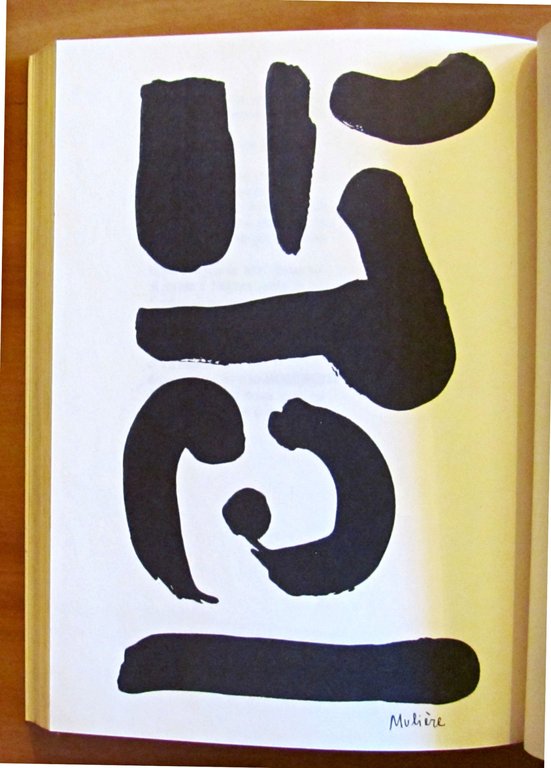 Mulière